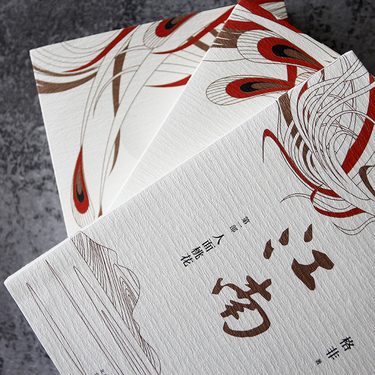 江南
第一部
人面桃花
格非 著